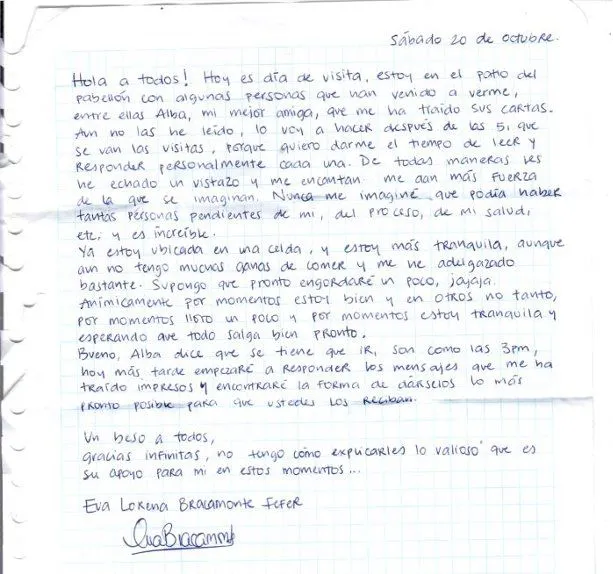 Sábado 20 de octubre.
Hola a todos! Hoy es día de visita, estoy en el patio del
pabellón con algunas personas que han venido a verme,
entre ellas Alba, mi mejor amiga, que me ha traido sus cartas.
Aun no las he leido, lo voy a hacer después de las 5, que
se van las visitas, porque quiero darme el tiempo de leer y
responder personalmente cada una. De todas maneras les
he echado un vistazo y me encantan. me dan más fuerza
de la que se imaginan. Nunca me imaginé que podía haber
tantas personas pendientes de mi, del proceso, de mi salud,
etc, y es increíble.
Ya estoy ubicada en una celda, y estoy más tranquila, aunque
aun no tengo muchas ganas de comer y me he adelgazado
bastante. Supongo que pronto engordaré un poco, jajaja.
Anímicamente por momentos estoy bien y en otros no tanto,
por momentos lloro un poco y por momentos estoy tranquila y
esperando que todo salga bien pronto.
Bueno, Alba dice que se tiene que ir, son como las 3pm,
hoy más tarde empezaré a responder los mensajes que me ha
traído impresos y encontraré la forma de dárselos lo más
pronto posible para que ustedes los reciban.
Un beso a todos,
gracias infinitas, no tengo cómo explicarles lo valioso que es
su apoyo para mi en estos momentos...
Eva Lorena Bracamonte Fefer
Eva Bracamonte